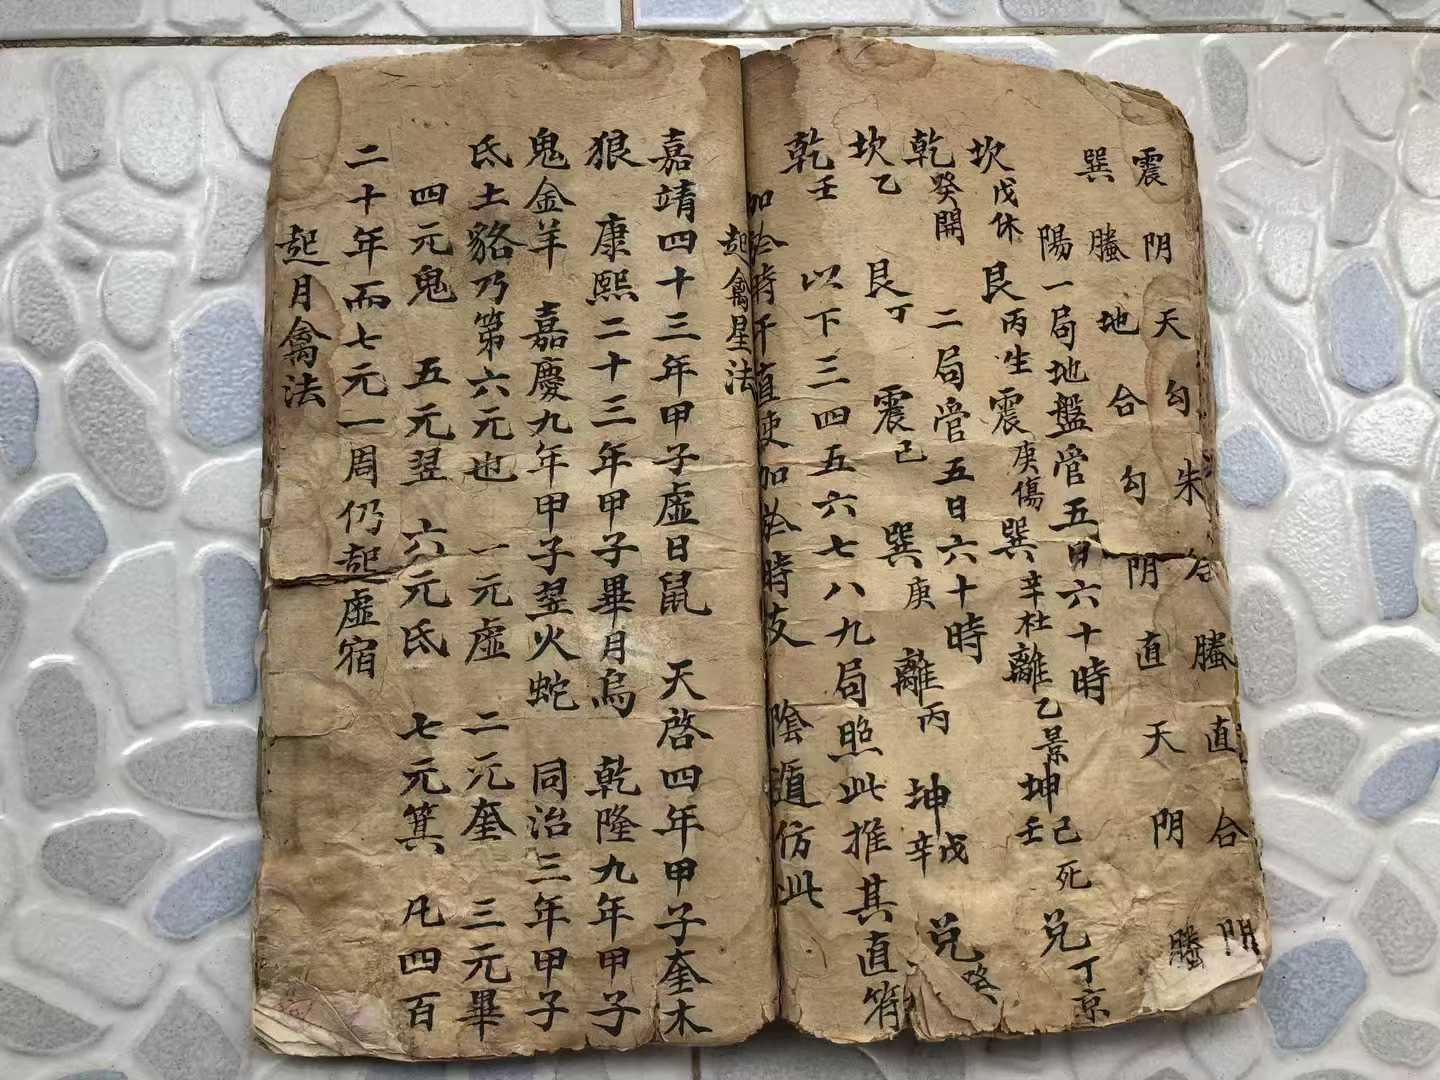 震 阴 天 勾 朱 合 螣 直 合 阴
巽 螣 地 合 勾 阴 直 天 阴 螣
陽一局地盤管五日六十時
坎戊休 艮丙生 震庚傷 巽辛杜 離乙景 坤己死壬 兑丁京
乾癸開 二局管五日六十時
坎乙 艮丁 震己 巽庚 離丙 坤戊辛 兑癸
乾壬 以下三四五六七八九局照此推其直符
加於時干直使加於時支 陰遁仿此
起禽星法
嘉靖四十三年甲子虛日鼠 天啓四年甲子奎木
狼 康熙二十三年甲子畢月烏 乾隆九年甲子
鬼金羊 嘉慶九年甲子翌火蛇 同治三年甲子
氐土貉乃第六元也 一元虛 二元奎 三元畢
四元鬼 五元翌 六元氐 七元箕 凡四百
二十年而七元一周仍起虛宿
起月禽法